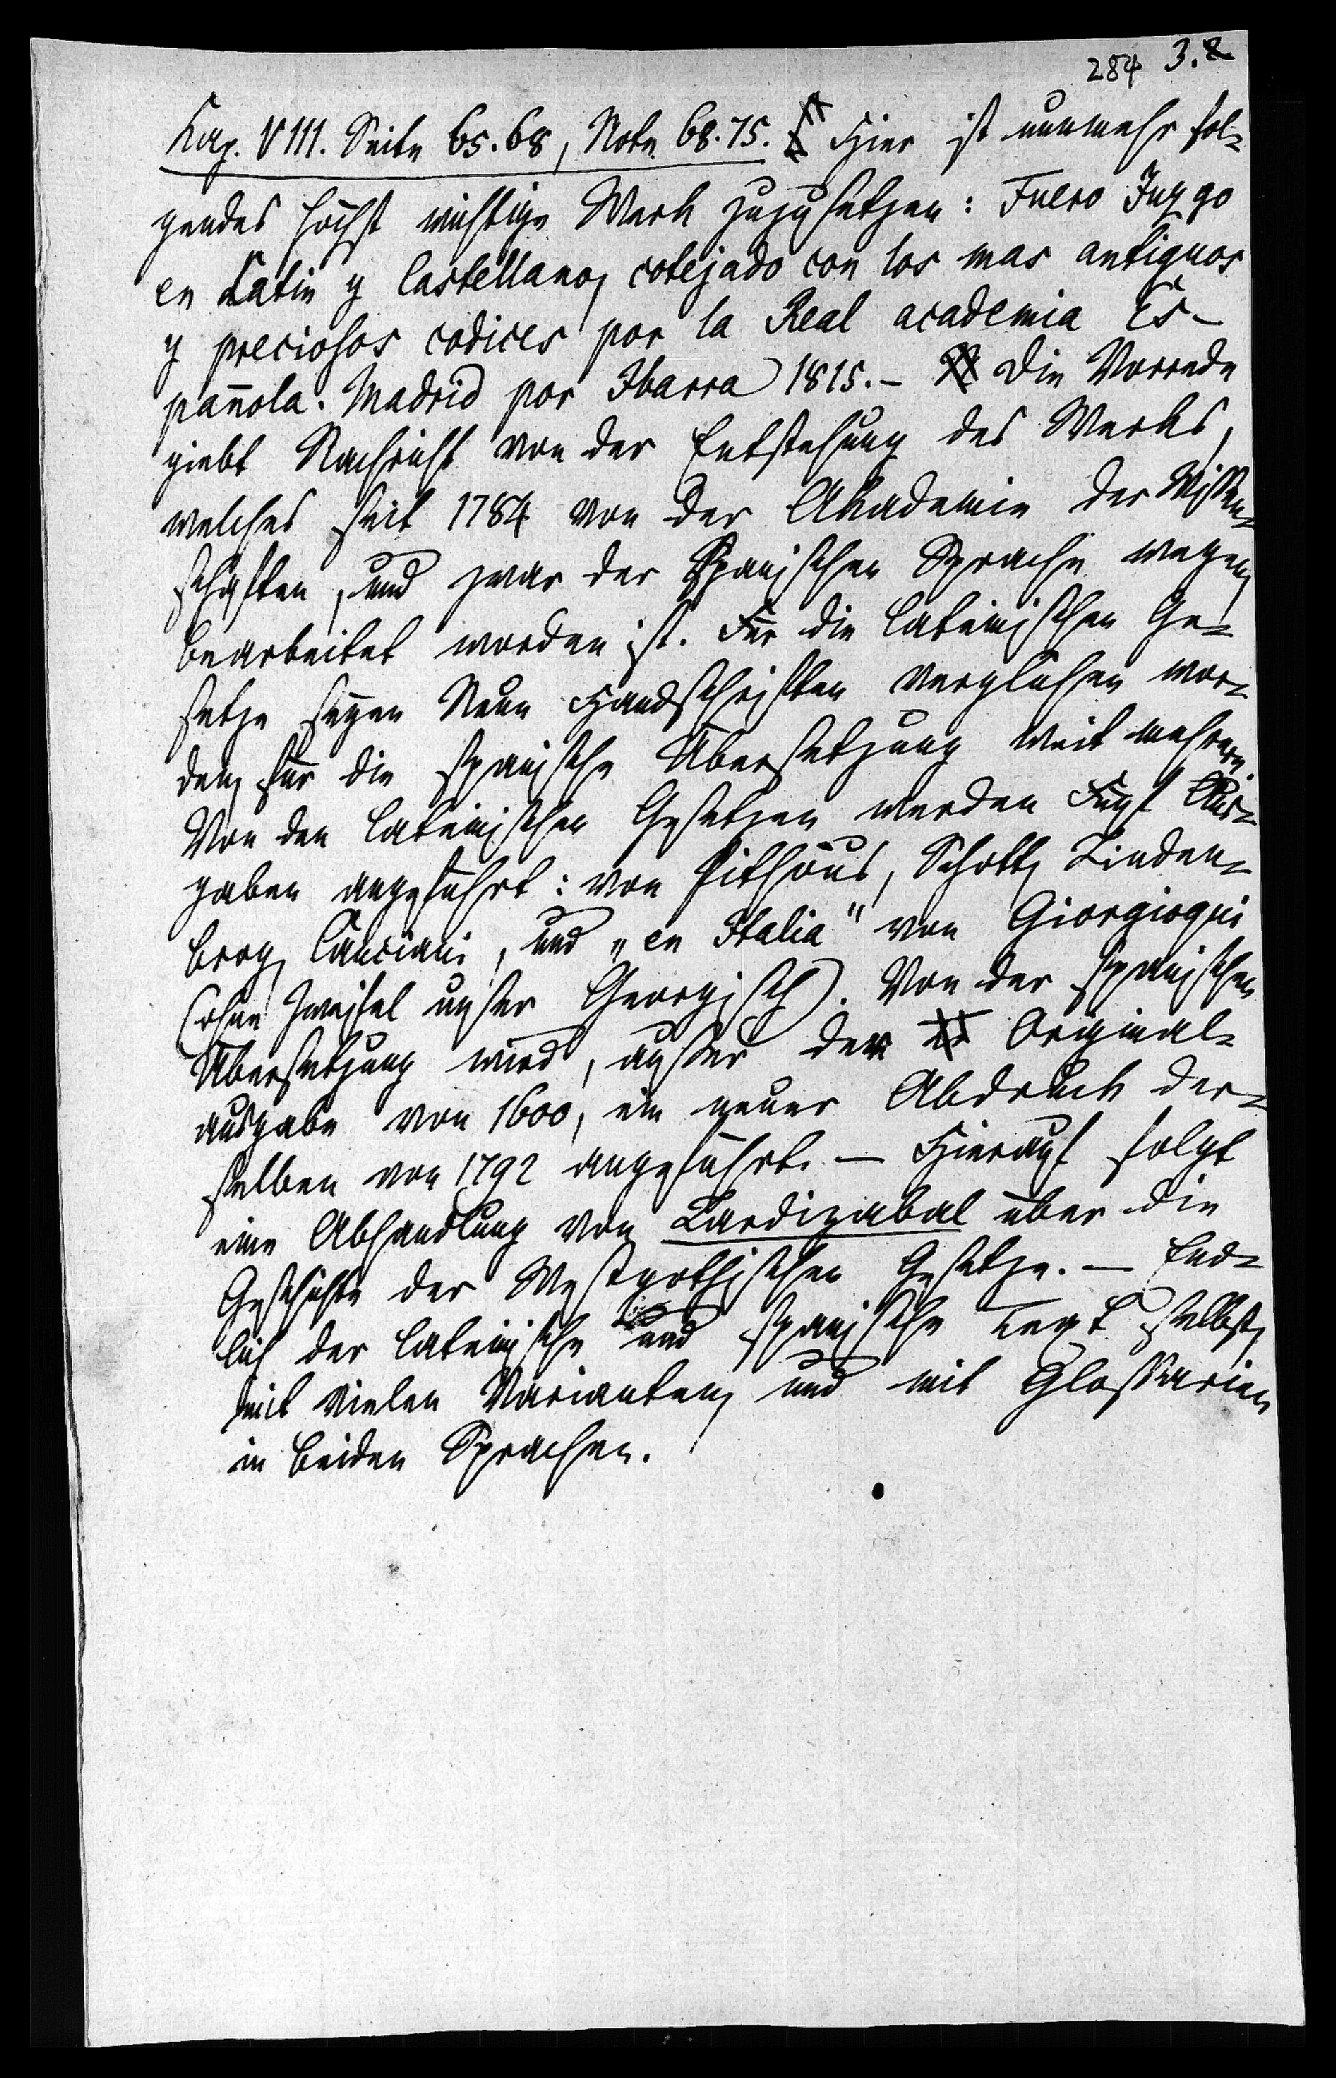 284 3.
Kap. VIII. Seite 65. 68, Note 68. 75. Hier ist nunmehr fol-
gendes höchst wichtige Werk zuzusetzen: Fuero Juzgo
en Latin y Castellano, cotejado con los mas antiguos
y preciosos codices por la Real academia Es-
pañola. Madrid por Ibarra 1815. – Die Vorrede
giebt Nachricht von der Entstehung des Werks,
welches seit 1784 von der Akademie der Wissen-
schaften, und zwar der Spanischen Sprache wegen,
bearbeitet worden ist. Für die lateinischen Ge-
setze seyen Neun Handschriften verglichen wor-
den, für die spanische Übersetzung weit mehrere.
Von den lateinischen Gesetzen werden Fünf Aus-
gaben angeführt: von Pithöus, Schott, Linden-
brog, Canciani, und „en Italia" von Giorgisqui
(ohne Zweifel unser Georgisch). Von der spanischen
Übersetzung wird, außer der Orginal-
ausgabe von 1600, ein neuer Abdruck der-
selben von 1792 angeführt. – Hierauf folgt
eine Abhandlung von Lardizabal über die
Geschichte der Westgothischen Gesetze. – End-
lich der lateinische und spanische Text selbst,
mit vielen Varianten, und mit Glossarien
in beiden Sprachen.